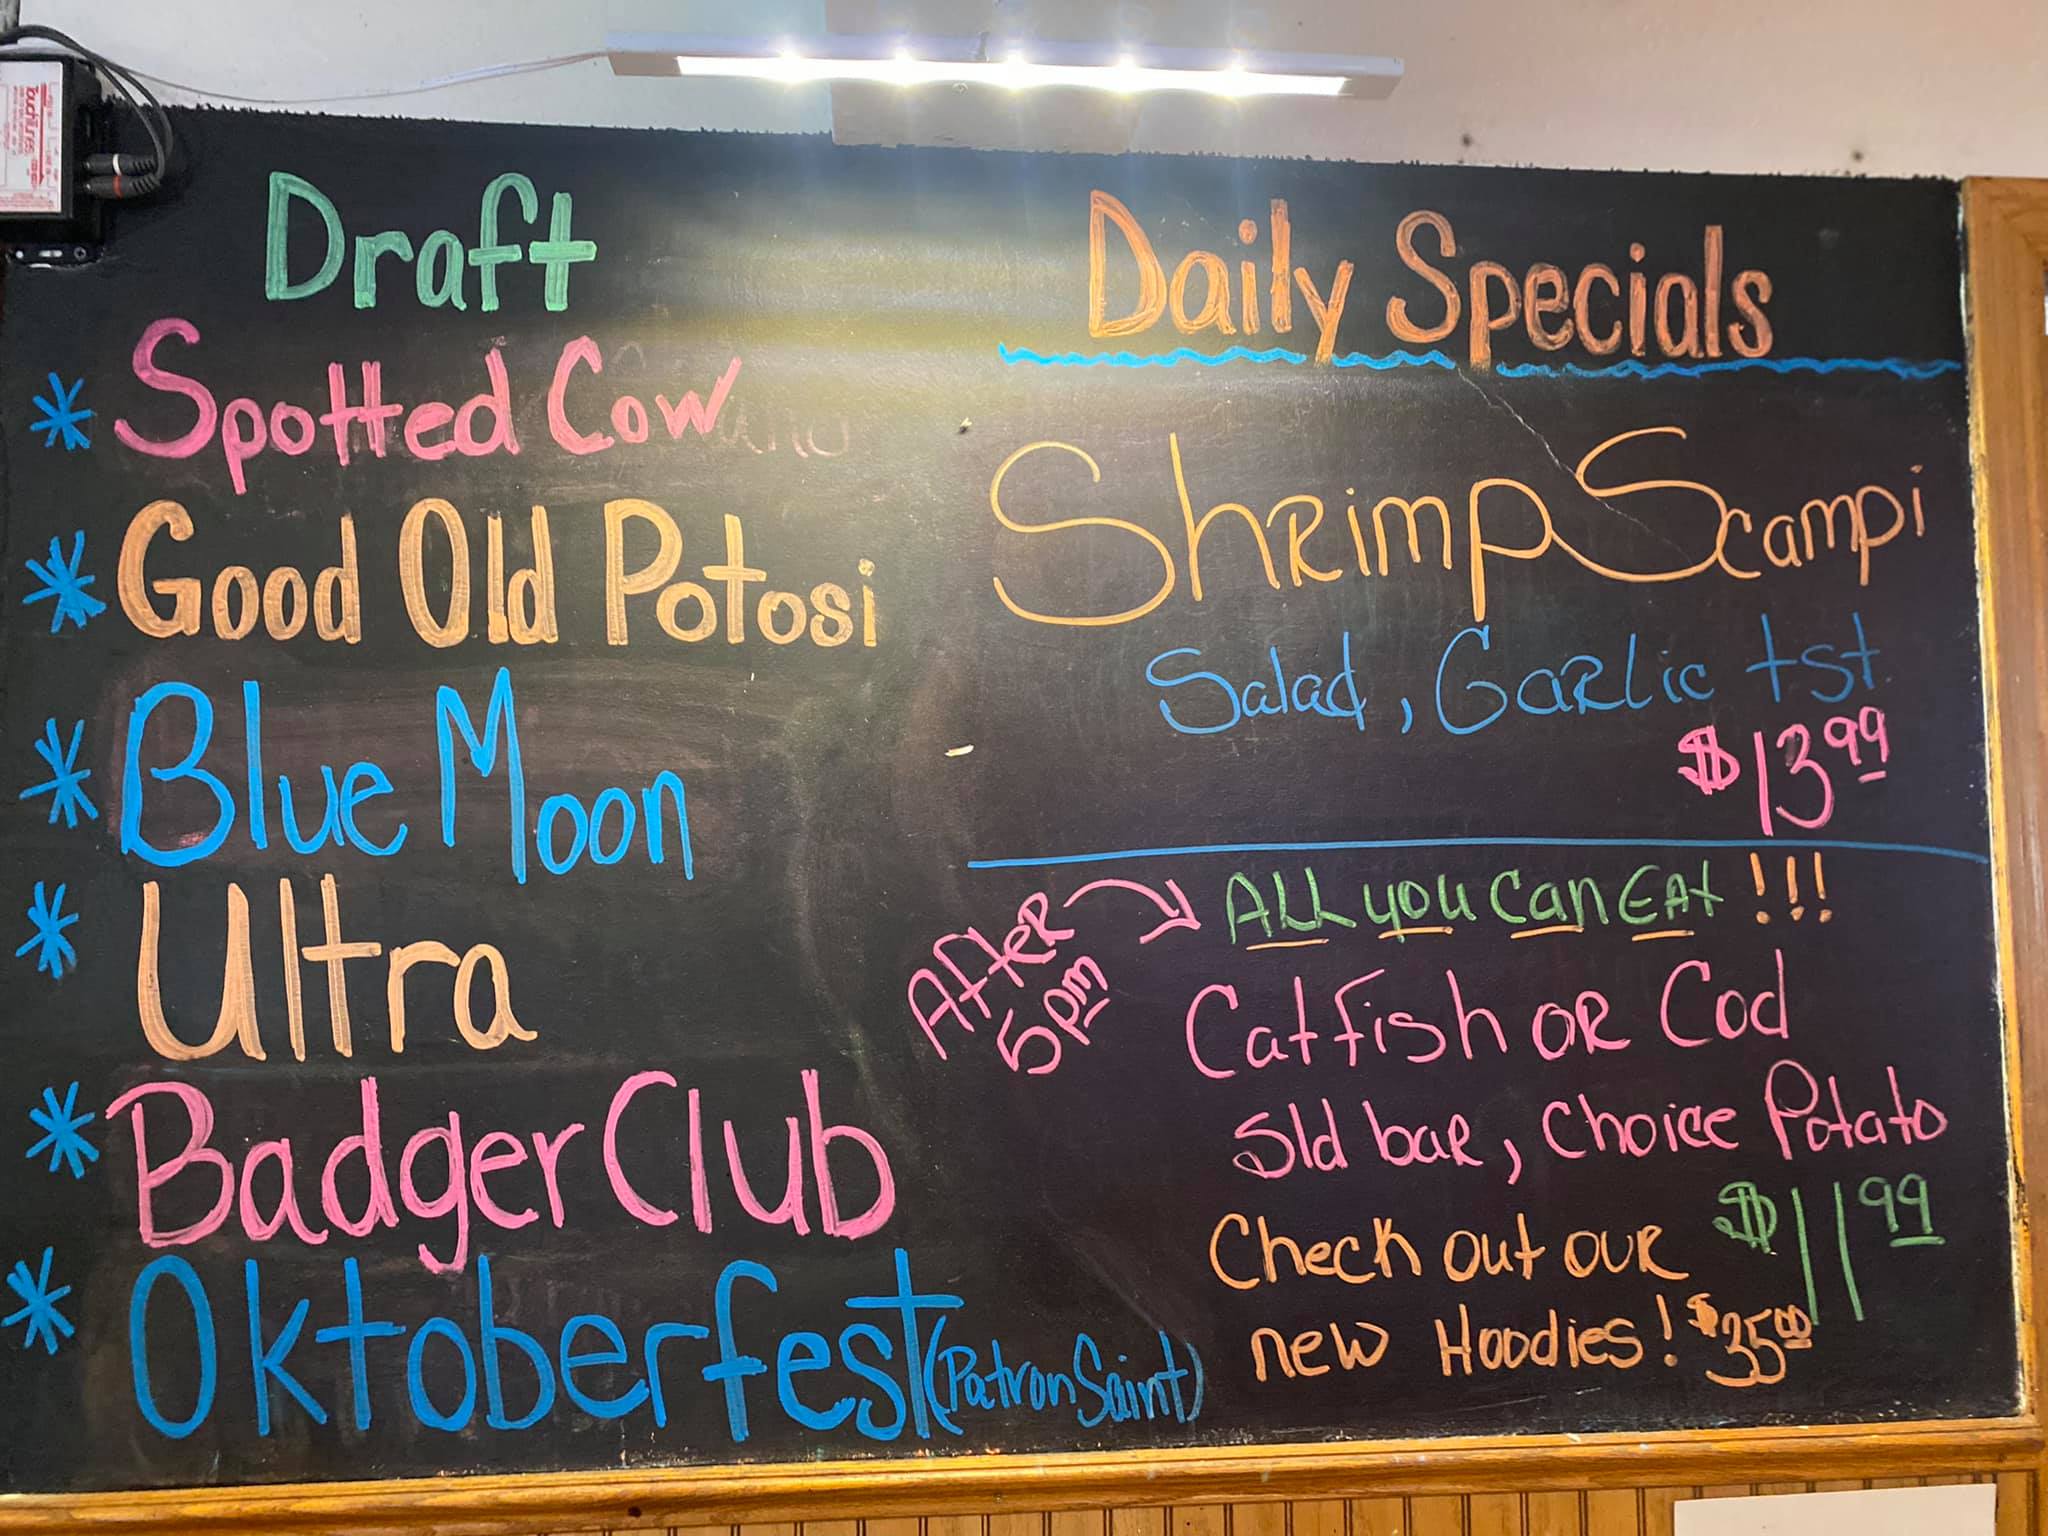 Draft
* Spotted Cow
* Good Old Potosi
* Blue Moon
* Ultra
* Badger Club
* Oktoberfest (Patron Saint)
Daily Specials
Shrimp Scampi
Salad, Garlic tst.
$13.99
After 5pm
All you can Eat !!!
Catfish or Cod
Sld bar, Choice Potato
$11.99
Check out our
new Hoodies! $35.00